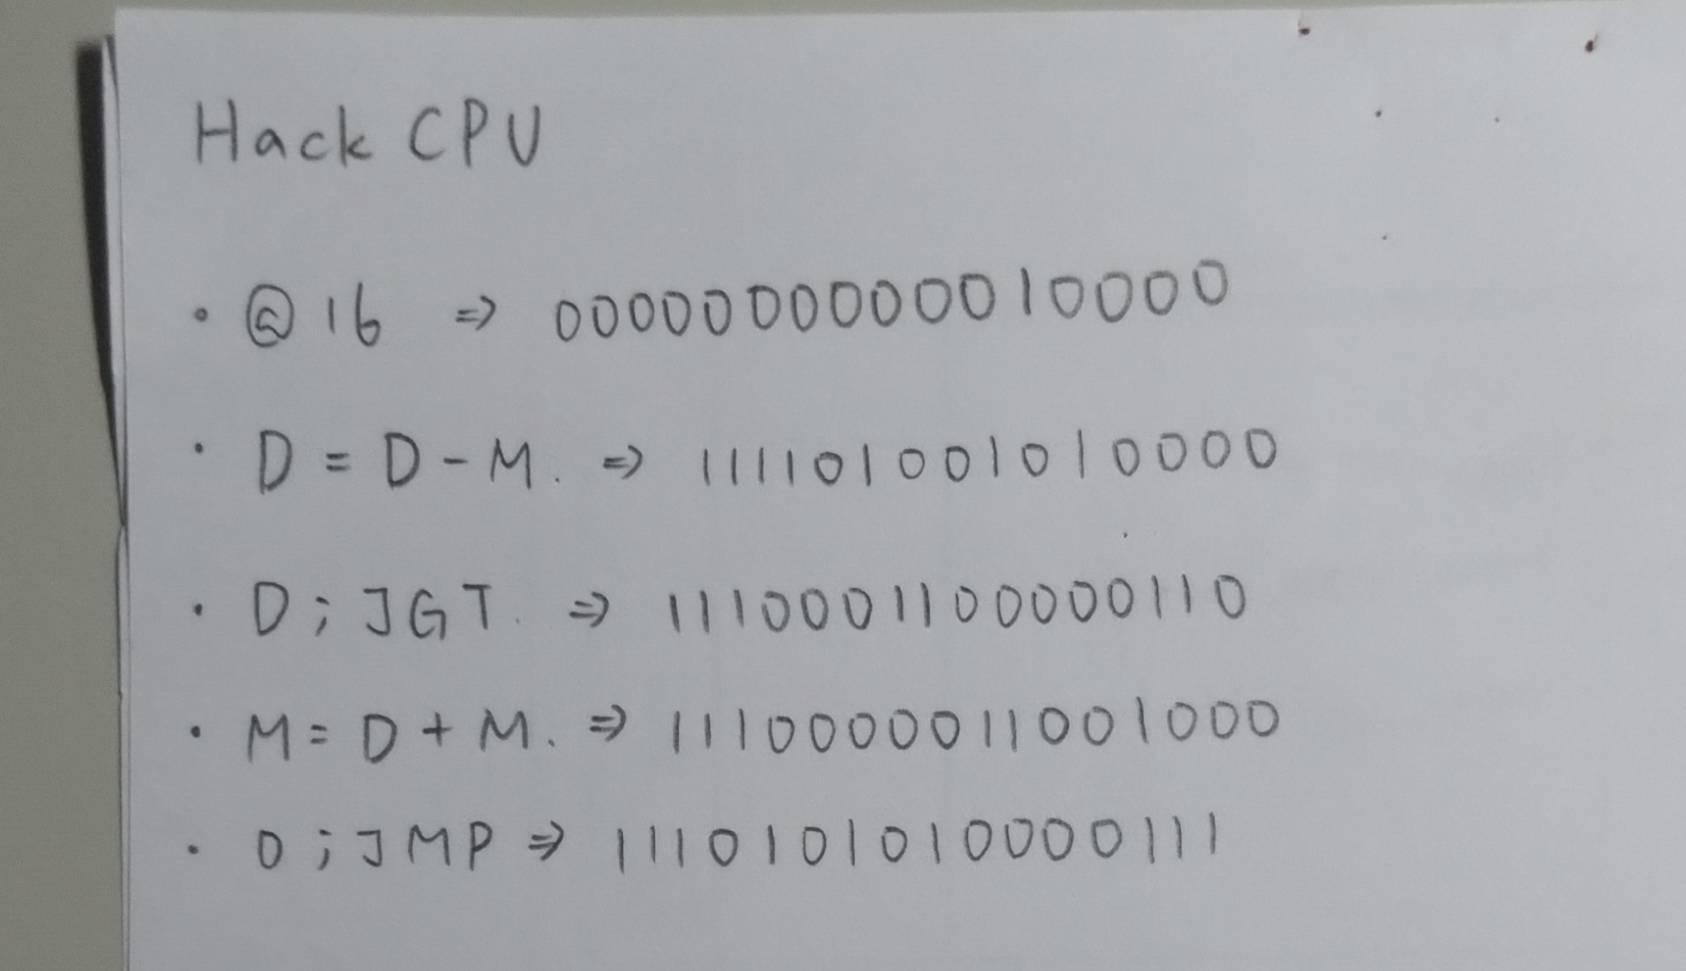 Hack CPU
· @16 ⇒ 0000000000010000
· D = D - M. ⇒ 111101001010000
· D ; JGT. ⇒ 1110001100000110
· M = D + M. ⇒ 1110000011001000
· 0 ; JMP ⇒ 1110101010000111